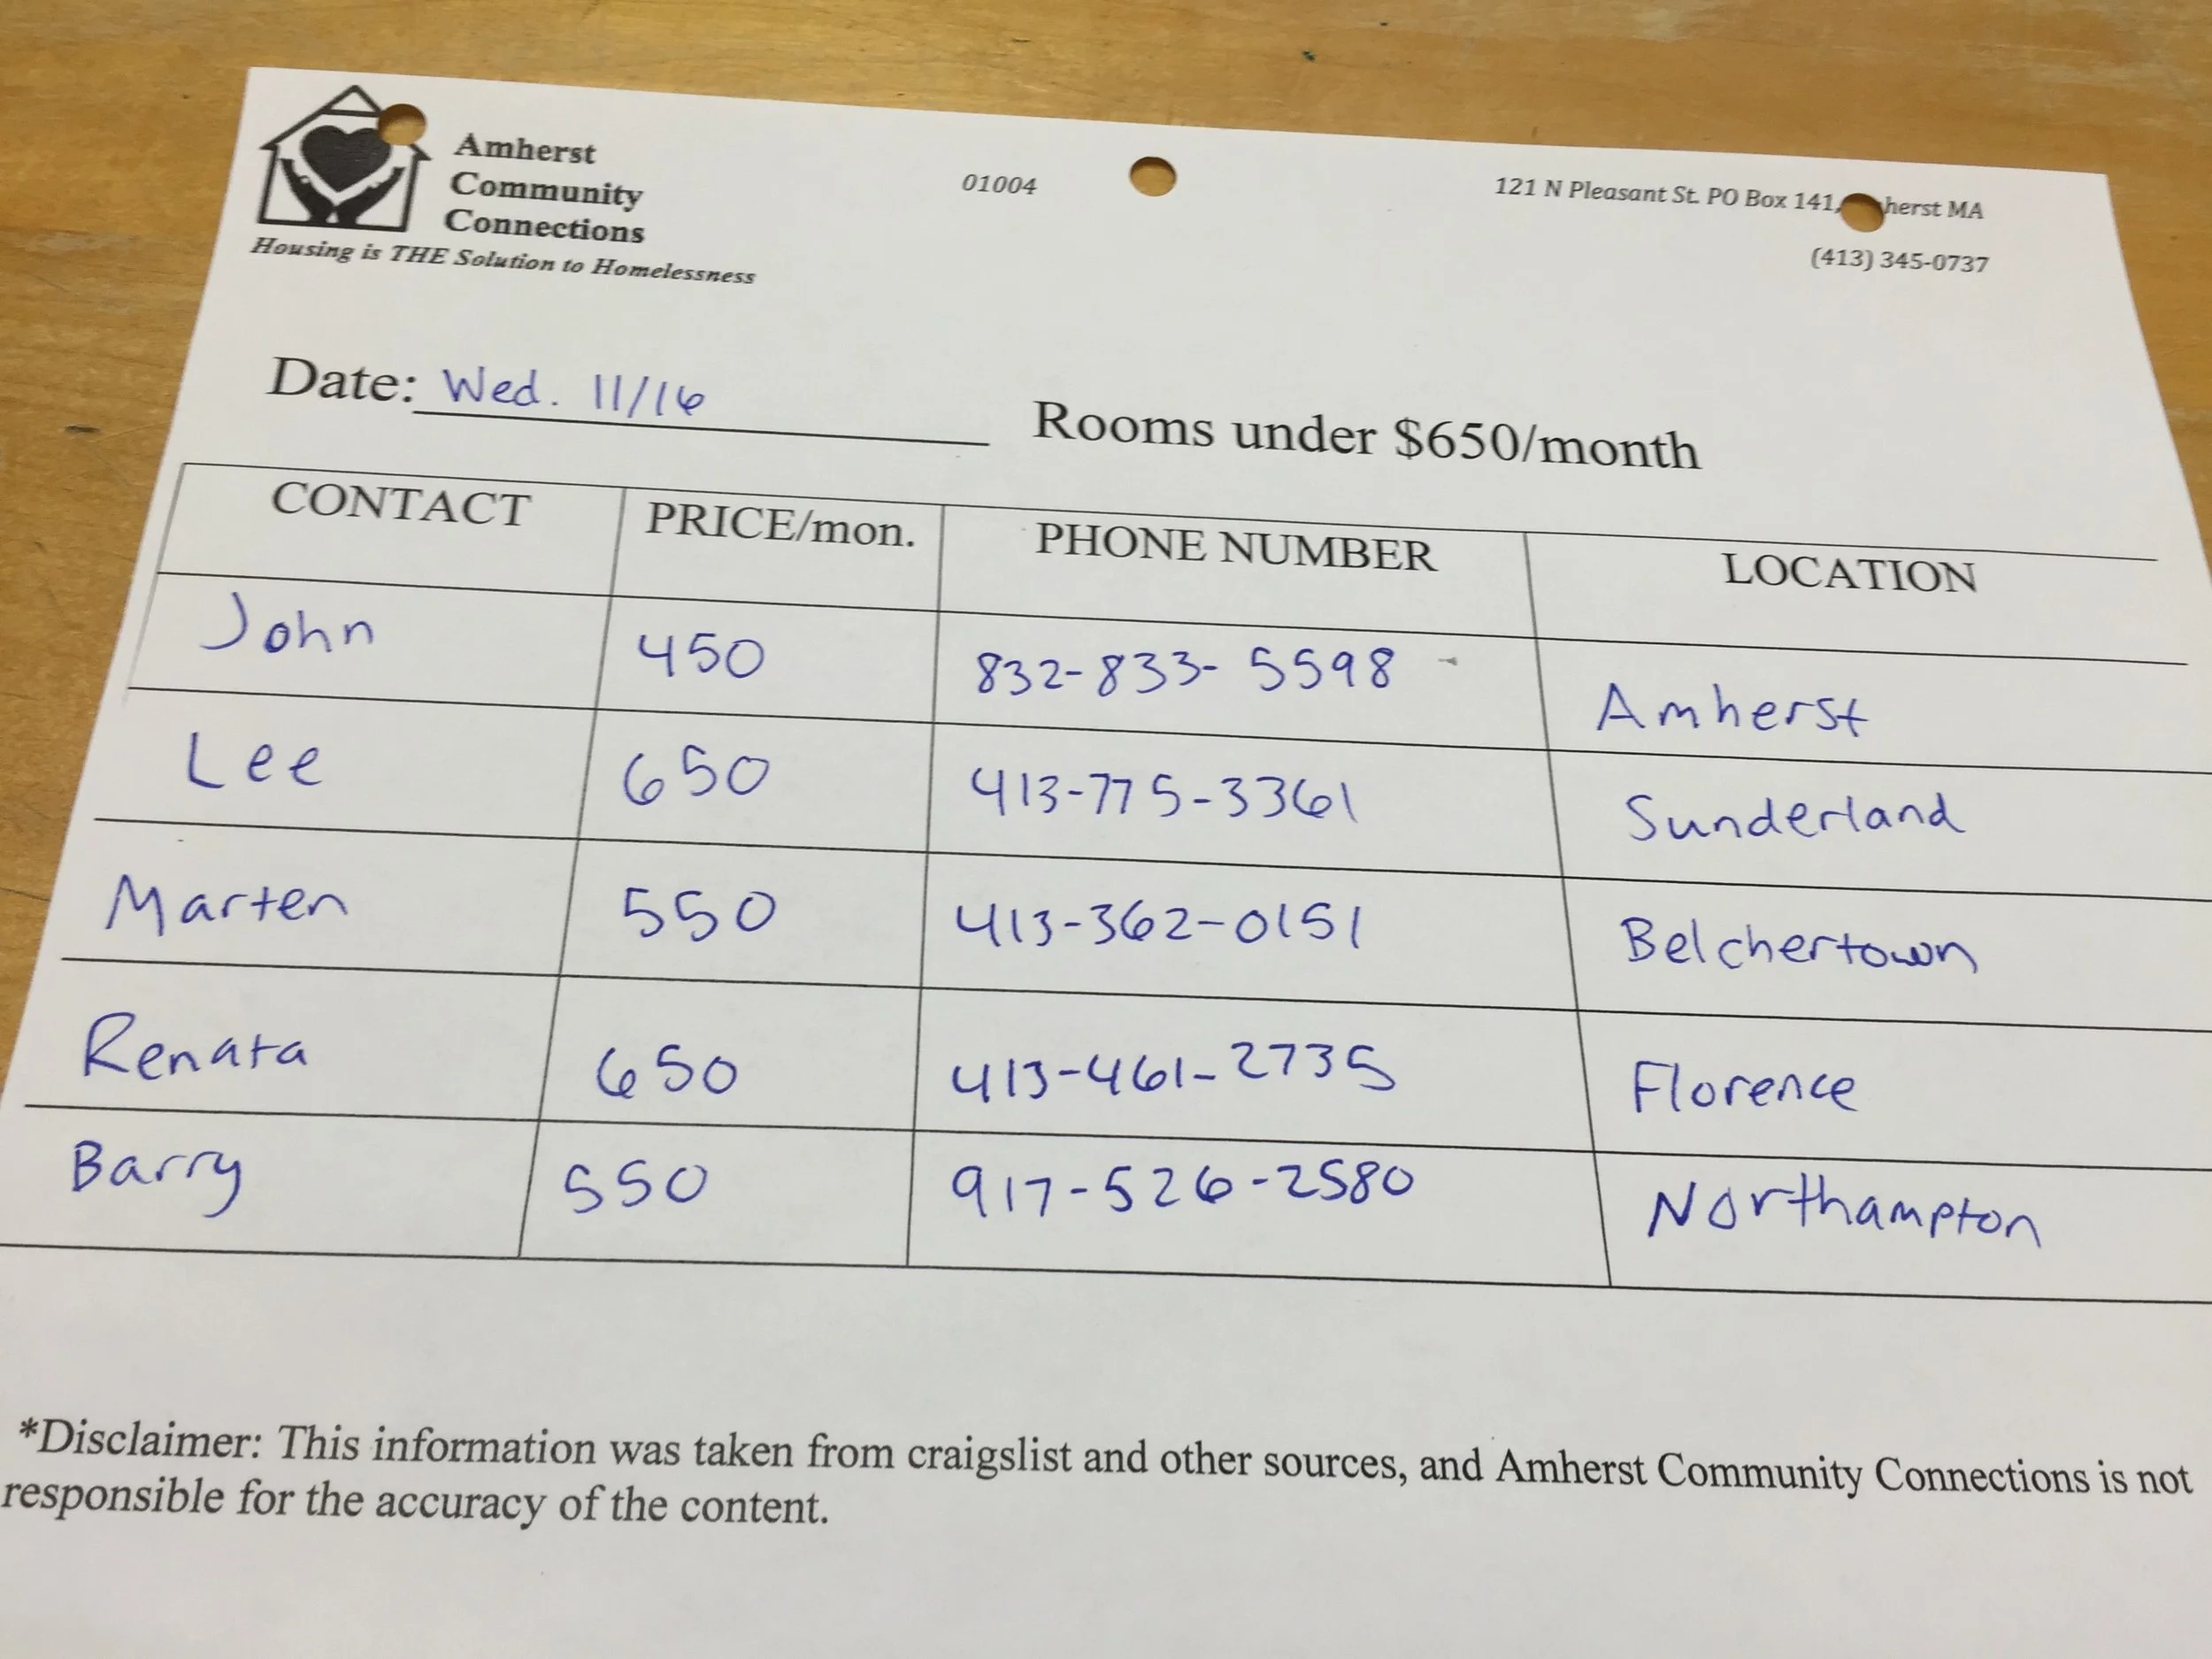 Amherst
Community
Connections
Housing is THE Solution to Homelessness
01004
121 N Pleasant St. PO Box 141, herst MA
(413) 345-0737
Date: Wed. 11/16 Rooms under $650/month
CONTACT PRICE/mon. PHONE NUMBER LOCATION
John 450 832-833-5598 Amherst
Lee 650 413-775-3361 Sunderland
Marten 550 413-362-0151 Belchertown
Renata 650 413-461-2735 Florence
Barry 550 917-526-2580 Northampton
*Disclaimer: This information was taken from craigslist and other sources, and Amherst Community Connections is not
responsible for the accuracy of the content.